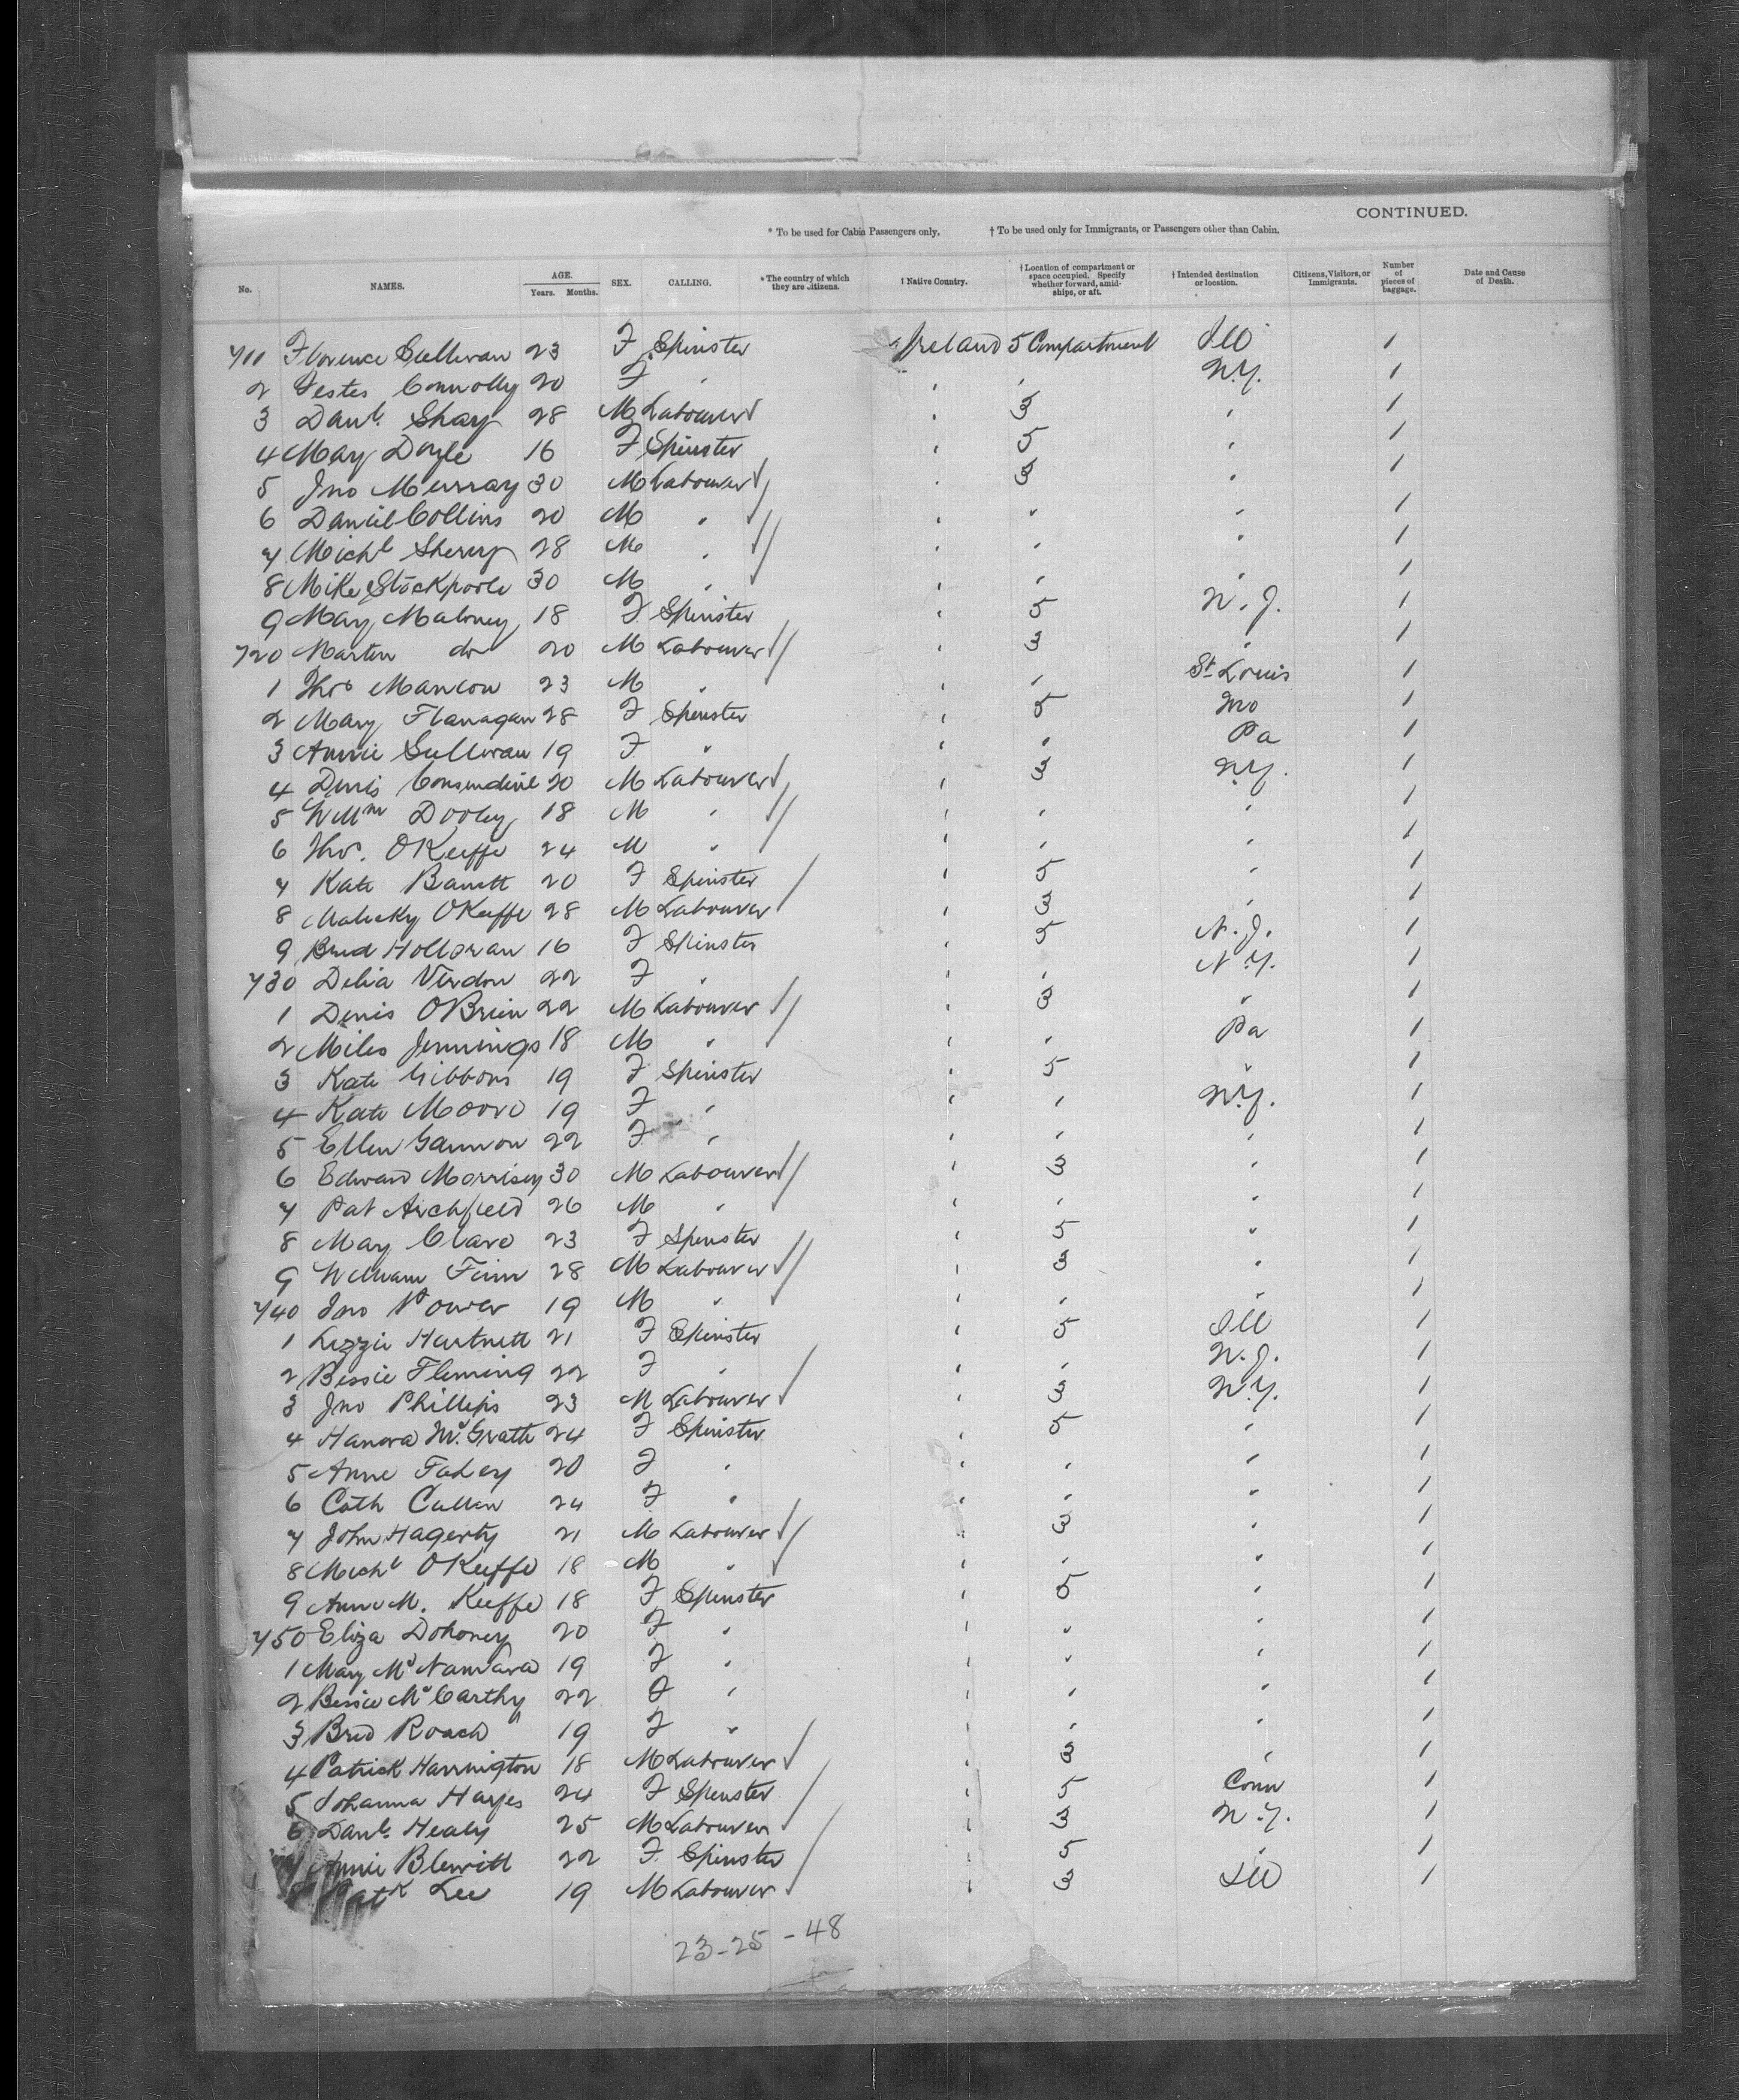 CONTINUED.
* To be used for Cabin Passengers only. † To be used only for Immigrants, or Passengers other than Cabin.
No. NAMES. AGE. Years. Months. SEX. CALLING. * The country of which they are citizens. † Native Country. † Location of compartment or space occupied. Specify whether forward, amidships, or aft. † Intended destination or location. Citizens, Visitors, or Immigrants. Number of pieces of baggage. Date and Cause of Death.
711 Florence Sullivan 23 F Spinster Ireland 5 Compartment Ill 1
2 Festes Connolly 20 F " " " N.Y. 1
3 Danl. Shay 28 M Labourer " 3 " 1
4 May Doyle 16 F Spinster " 5 " 1
5 Jno Murray 30 M Labourer " 3 " 1
6 Daniel Collins 20 M " " " " 1
7 Michl Sherry 28 M " " " " 1
8 Mike Stackpoole 30 M " " " " 1
9 Mary Maloney 18 F Spinster " 5 N.J. 1
720 Martin do 20 M Labourer " 3 " 1
1 Thos 23 M " " " St Louis 1
2 Mary Flanagan 28 F Spinster " 5 Mo 1
3 Annie Sullivan 19 F " " " Pa 1
4 Denis Consendine 20 M Labourer " 3 N.Y. 1
5 Willm Dooley 18 M " " " " 1
6 Thos. OKeeffe 24 M " " " " 1
7 Kate Barrett 20 F Spinster " 5 " 1
8 Malucky OKeeffe 28 M Labourer " 3 " 1
9 Brid Holloran 16 F Spinster " 5 N.J. 1
730 Delia Verdon 22 F " " " N.Y. 1
1 Denis OBrien 22 M Labourer " 3 " 1
2 Miles Jennings 18 M " " " Pa 1
3 Kate Gibbons 19 F Spinster " 5 " 1
4 Kate Moore 19 F " " " N.Y. 1
5 Ellen Gannon 22 F " " " " 1
6 Edward Morrisey 30 M Labourer " 3 " 1
7 Pat Archfield 26 M " " " " 1
8 May Clare 23 F Spinster " 5 " 1
9 William Finn 28 M Labourer " 3 " 1
740 Jno Power 19 M " " " " 1
1 Lizzie Hartnett 21 F Spinster " 5 Ill 1
2 Bessie Fleming 22 F " " " N.J. 1
3 Jno Phillips 23 M Labourer " 3 N.Y. 1
4 Hanora McGrath 24 F Spinster " 5 " 1
5 Anne Fahey 20 F " " " " 1
6 Cath Cullen 24 F " " " " 1
7 John Hagerty 21 M Labourer " 3 " 1
8 Michl OKeeffe 18 M " " " " 1
9 Anne M. Keeffe 18 F Spinster " 5 " 1
750 Eliza Dohoney 20 F " " " " 1
1 Mary McNamara 19 F " " " " 1
2 Bessie McCarthy 22 F " " " " 1
3 Brid Roach 19 F " " " " 1
4 Patrick Harrington 18 M Labourer " 3 " 1
5 Johanna Hayes 24 F Spinster " 5 Conn 1
6 Danl. Healy 25 M Labourer " 3 N.Y. 1
7 Annie Blewitt 22 F Spinster " 5 " 1
Patk Lee 19 M Labourer " 3 Ill 1
23-25-48